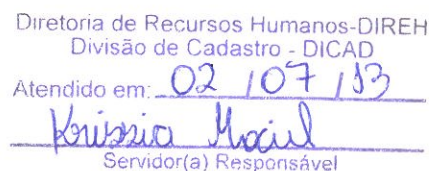 Diretoria de Recursos Humanos-DIREH
Divisão de Cadastro - DICAD
Atendido em: 02 / 07 / 13
Krissia Maciel
Servidor(a) Responsável